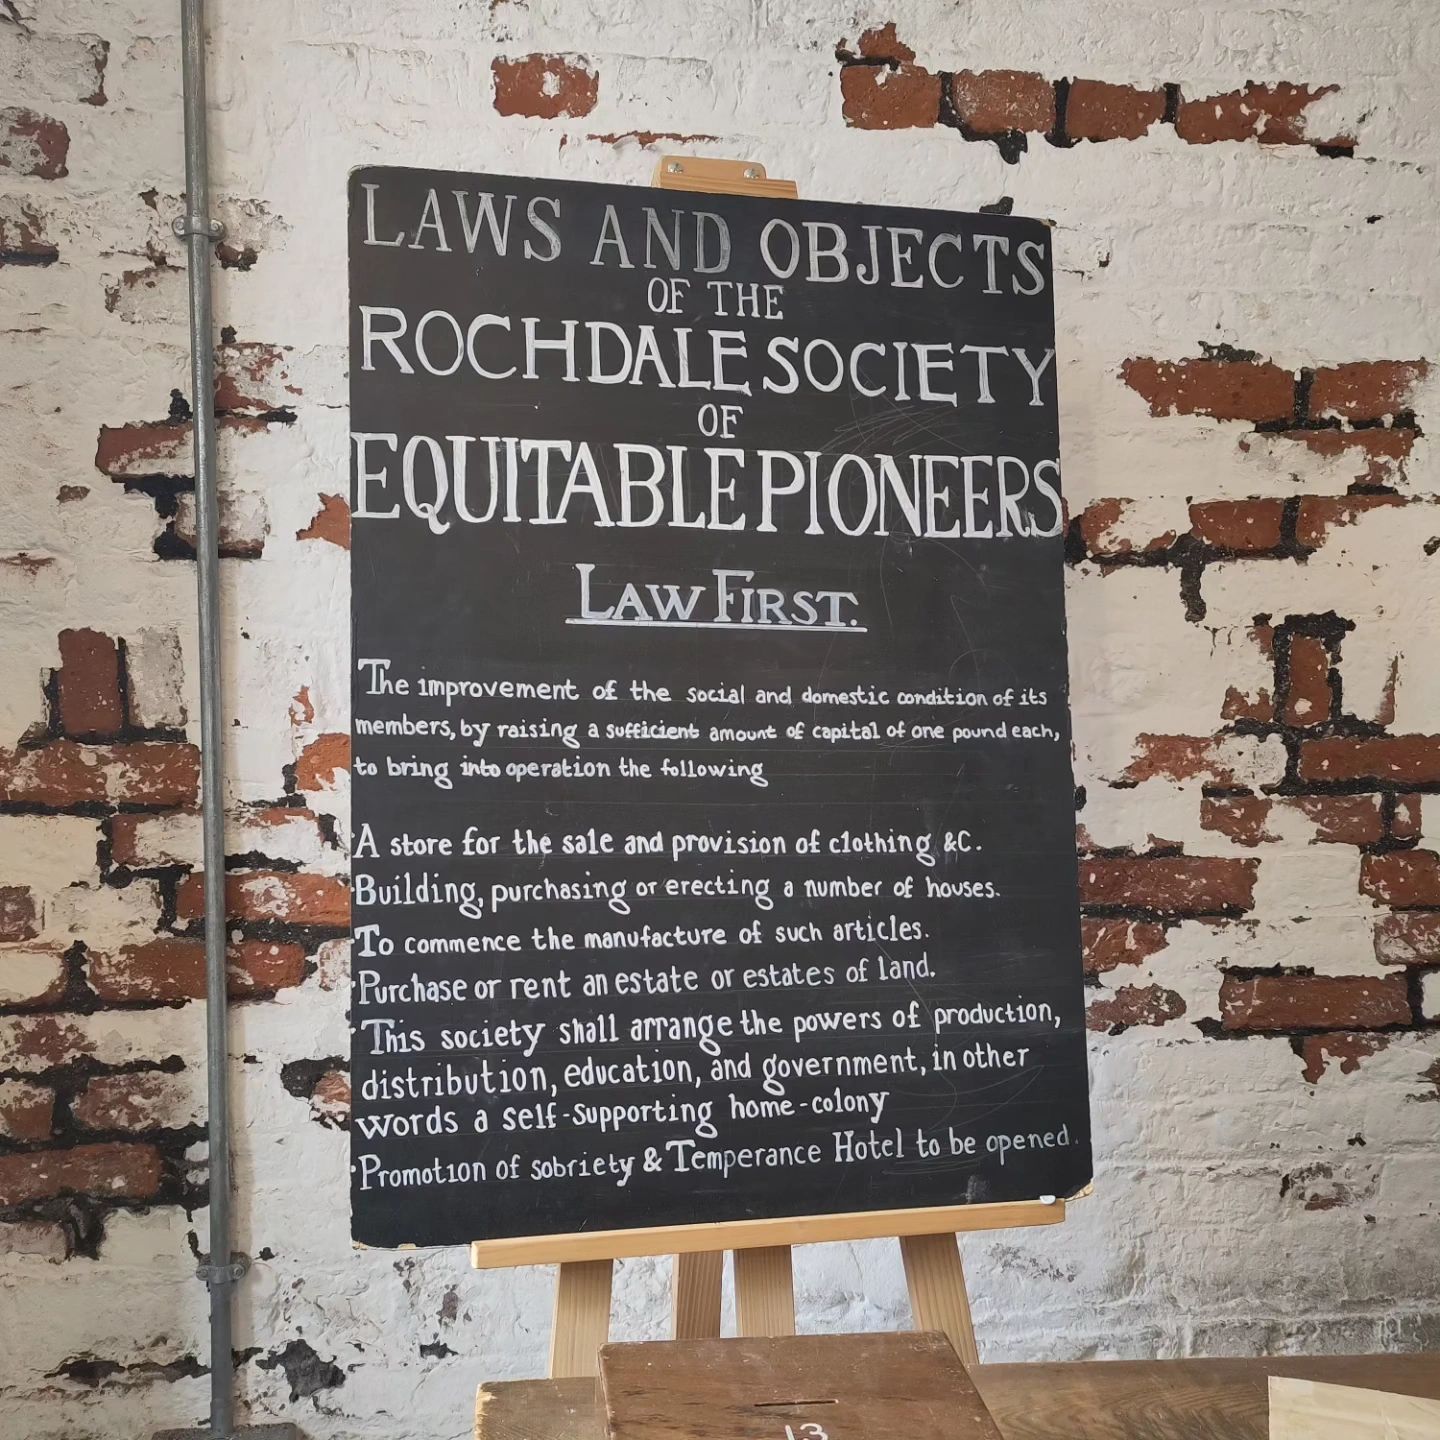 LAWS AND OBJECTS
OF THE
ROCHDALE SOCIETY
OF
EQUITABLE PIONEERS
LAW FIRST.
The improvement of the social and domestic condition of its
members, by raising a sufficient amount of capital of one pound each,
to bring into operation the following
·A store for the sale and provision of clothing &C.
·Building, purchasing or erecting a number of houses.
·To commence the manufacture of such articles.
·Purchase or rent an estate or estates of land.
·This society shall arrange the powers of production,
distribution, education, and government, in other
words a self-supporting home-colony
·Promotion of sobriety & Temperance Hotel to be opened.
13